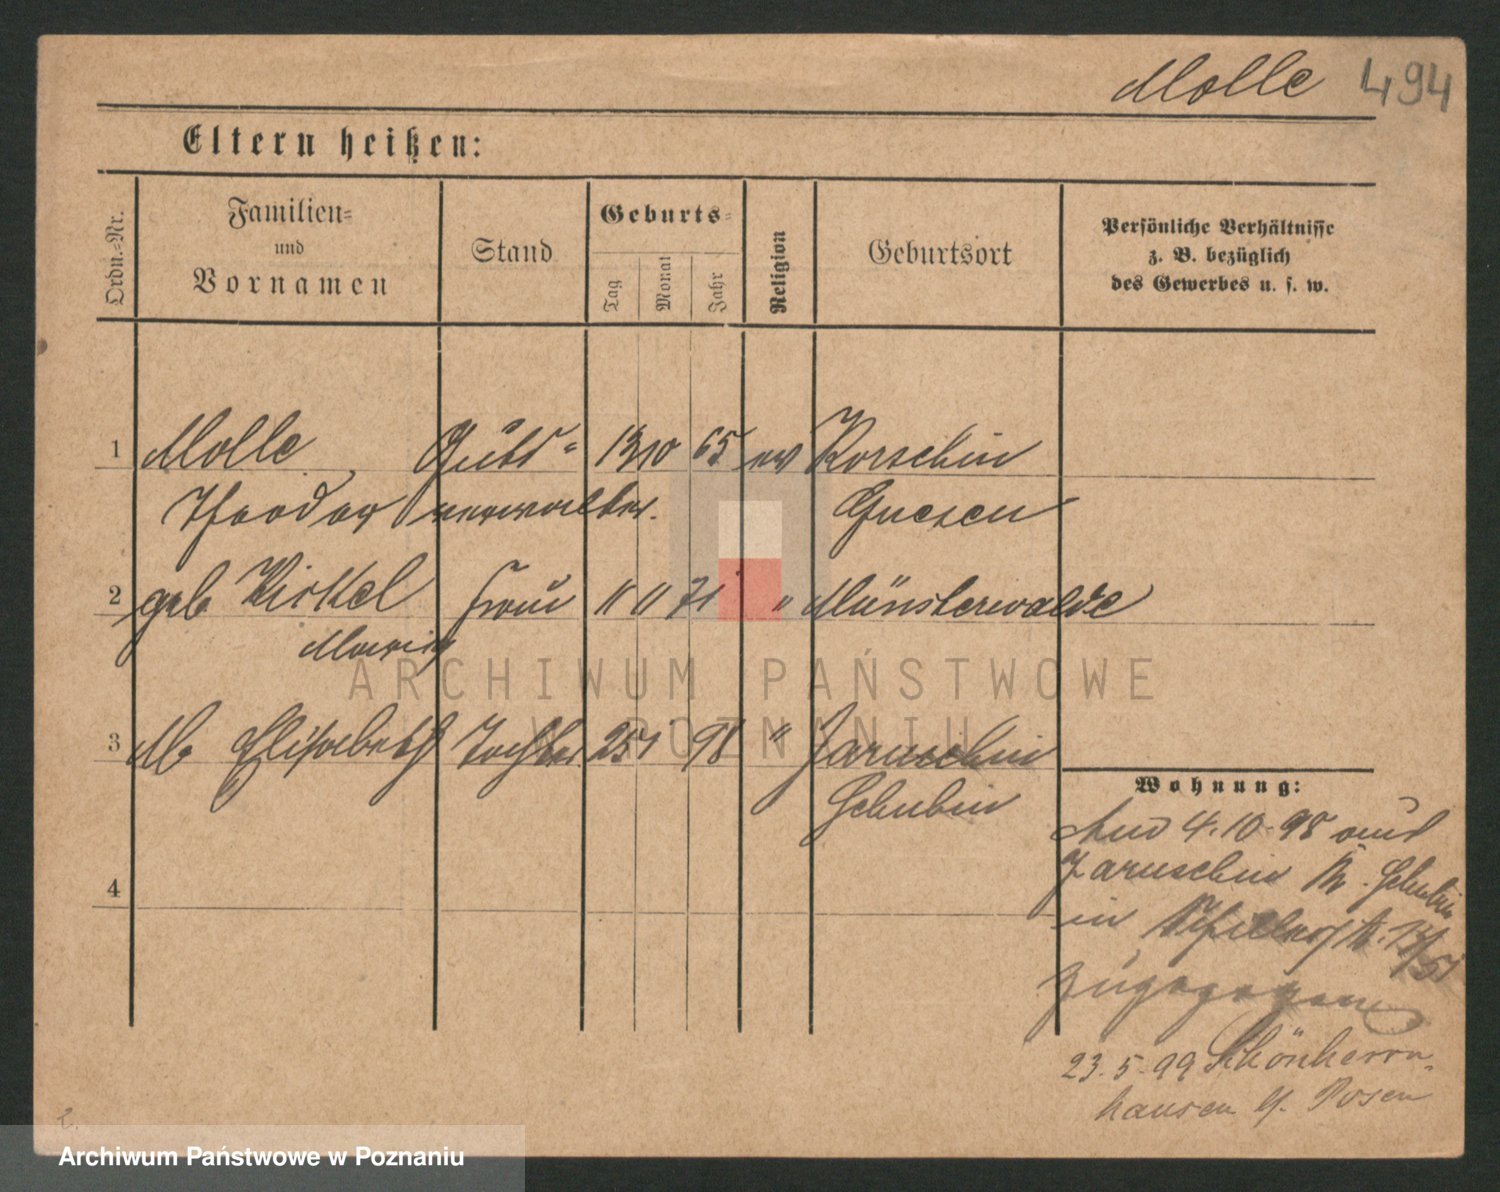 Molle 494
Eltern heißen:
Ordn.-Nr.
Familien-
und
Vornamen
Stand
Geburts-
Tag
Monat
Jahr
Religion
Geburtsort
Persönliche Verhältnisse
z. B. bezüglich
des Gewerbes u. s. w.
1 Molle Guts- 13 10 65 ev Korschin
Theodor verwalter. Gnesen
2 geb Frau 11 11 71 " Münsterwalde
Maria
3 M. Elisabeth Tochter 25 1 98 " Jaruschin
Schubin
4
Wohnung:
Am 4.10.98 aus
Jaruschin Kr. Schubin
in
zugezogen
23.5.99 Schönherrn-
hausen Posen
2.
ARCHIWUM PAŃSTWOWE
W POZNANIU
Archiwum Państwowe w Poznaniu